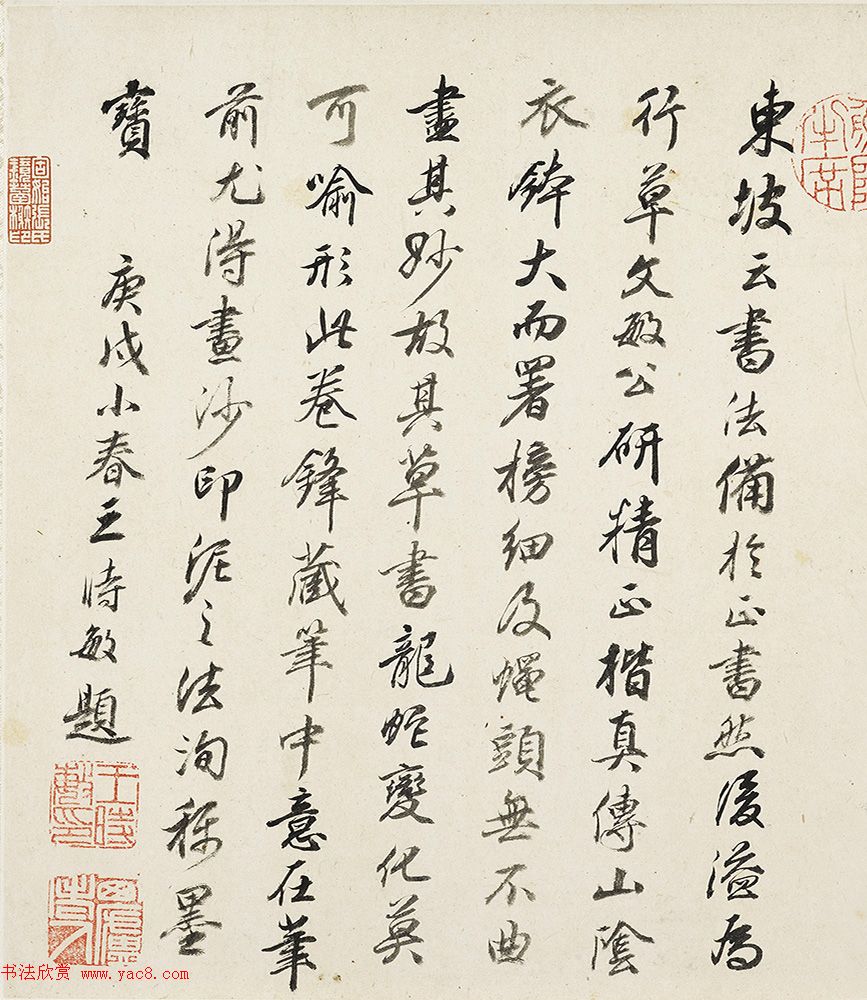 東坡云書法備於正書然後溢為
行草文敏公研精正楷真傳山陰
衣鉢大而署榜細及蠅頭無不曲
盡其妙故其草書龍蛇變化莫
可喻形此卷鋒藏筆中意在筆
前尤得畫沙印泥之法洵稱墨
寶
庚戌小春王時敏題
王時敏印
书法欣赏 www.yac8.com